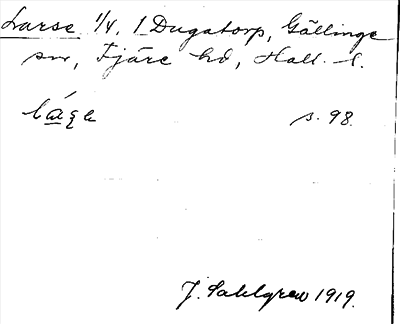 Larse 1/4, 1 Dugatorp, Gällinge
sn, Fjäre hd, Hall. l.
s. 98.
J. Sahlgren 1919.